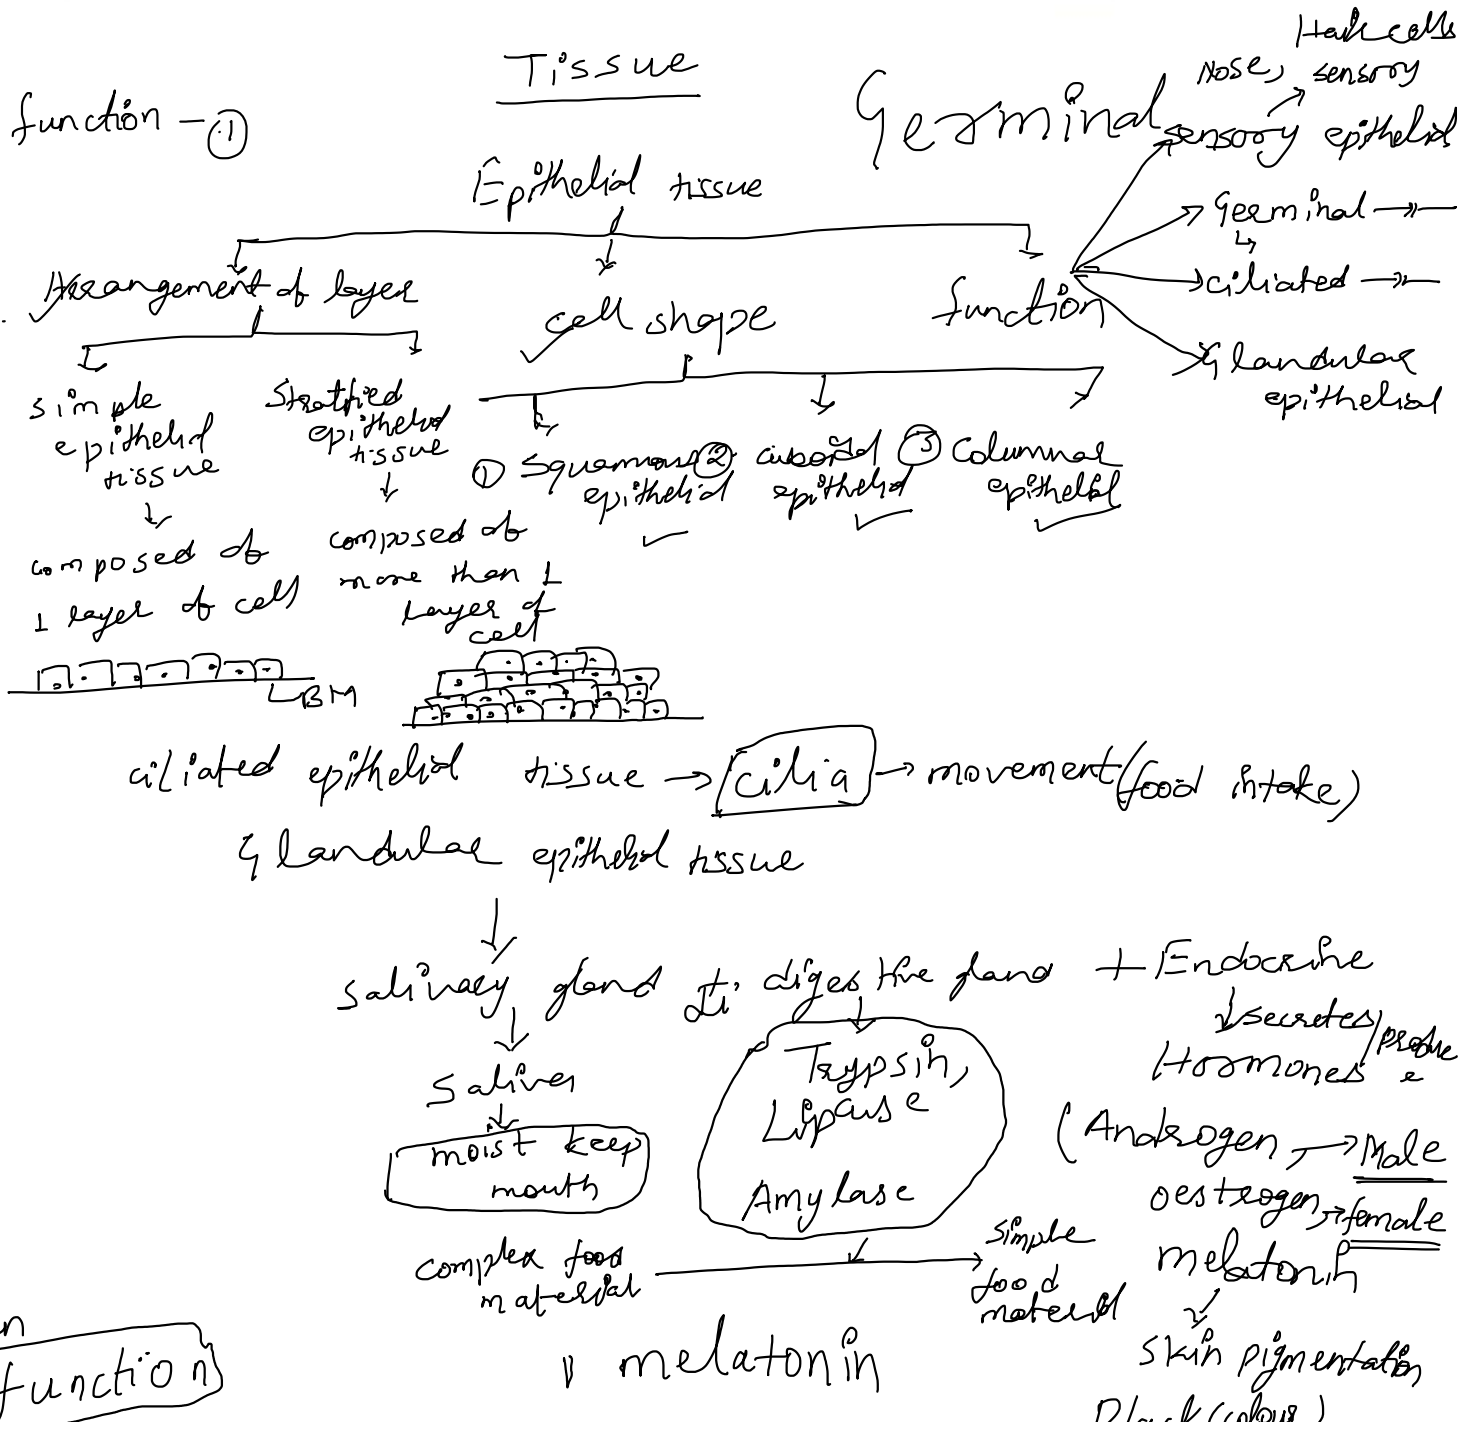 Tissue
function - 1
Germinal
Hair cells
Nose, sensory
sensory epithelial
Epithelial tissue
Germinal
ciliated
Glandular
epithelial
Arrangement of layer
cell shape
function
simple
epithelial
tissue
Stratified
epithelial
tissue
1 Squamous
epithelial
2 cuboidal
epithelial
3 Columnar
epithelial
composed of
1 layer of cell
composed of
more than 1
layer of
cell
BM
ciliated epithelial tissue → cilia → movement (food intake)
Glandular epithelial tissue
salivary gland
digestive gland + Endocrine
secretes/produce
Hormones
Saliva
moist keep
mouth
Trypsin,
Lipase
Amylase
(Androgen → Male
oestrogen → female
melatonin
skin pigmentation
Black (colour)
complex food
material
simple
food
material
melatonin
function